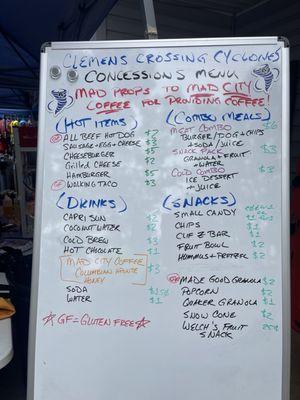 CLEMENS CROSSING CYCLONES
CONCESSIONS MENU
MAD PROPS TO MAD CITY
COFFEE FOR PROVIDING COFFEE!
(HOT ITEMS)
GF ALL BEEF HOT DOG $2
SAUSAGE + EGG + CHEESE $3
CHEESEBURGER $5
GRILLED CHEESE $2
HAMBURGER $5
GF WALKING TACO $3
(COMBO MEALS)
MEAT COMBO $6
BURGER/DOG + CHIPS
+ SODA/JUICE
SNACK PACK $3
GRANOLA + FRUIT
+ WATER
COLD COMBO $3
ICE DESSERT
+ JUICE
(DRINKS)
CAPRI SUN $2
COCONUT WATER $2
COLD BREW $3
HOT CHOCOLATE $1
MAD CITY COFFEE $3
COLUMBIAN
HONEY
SODA
WATER $1
☆GF = GLUTEN FREE☆
(SNACKS)
SMALL CANDY
CHIPS $1
CLIF Z BAR $1
FRUIT BOWL $2
HUMMUS + PRETZEL $2
GF MADE GOOD GRANOLA $2
POPCORN $2
QUAKER GRANOLA $1
SNOW CONE $2
WELCH'S FRUIT 25¢
SNACK